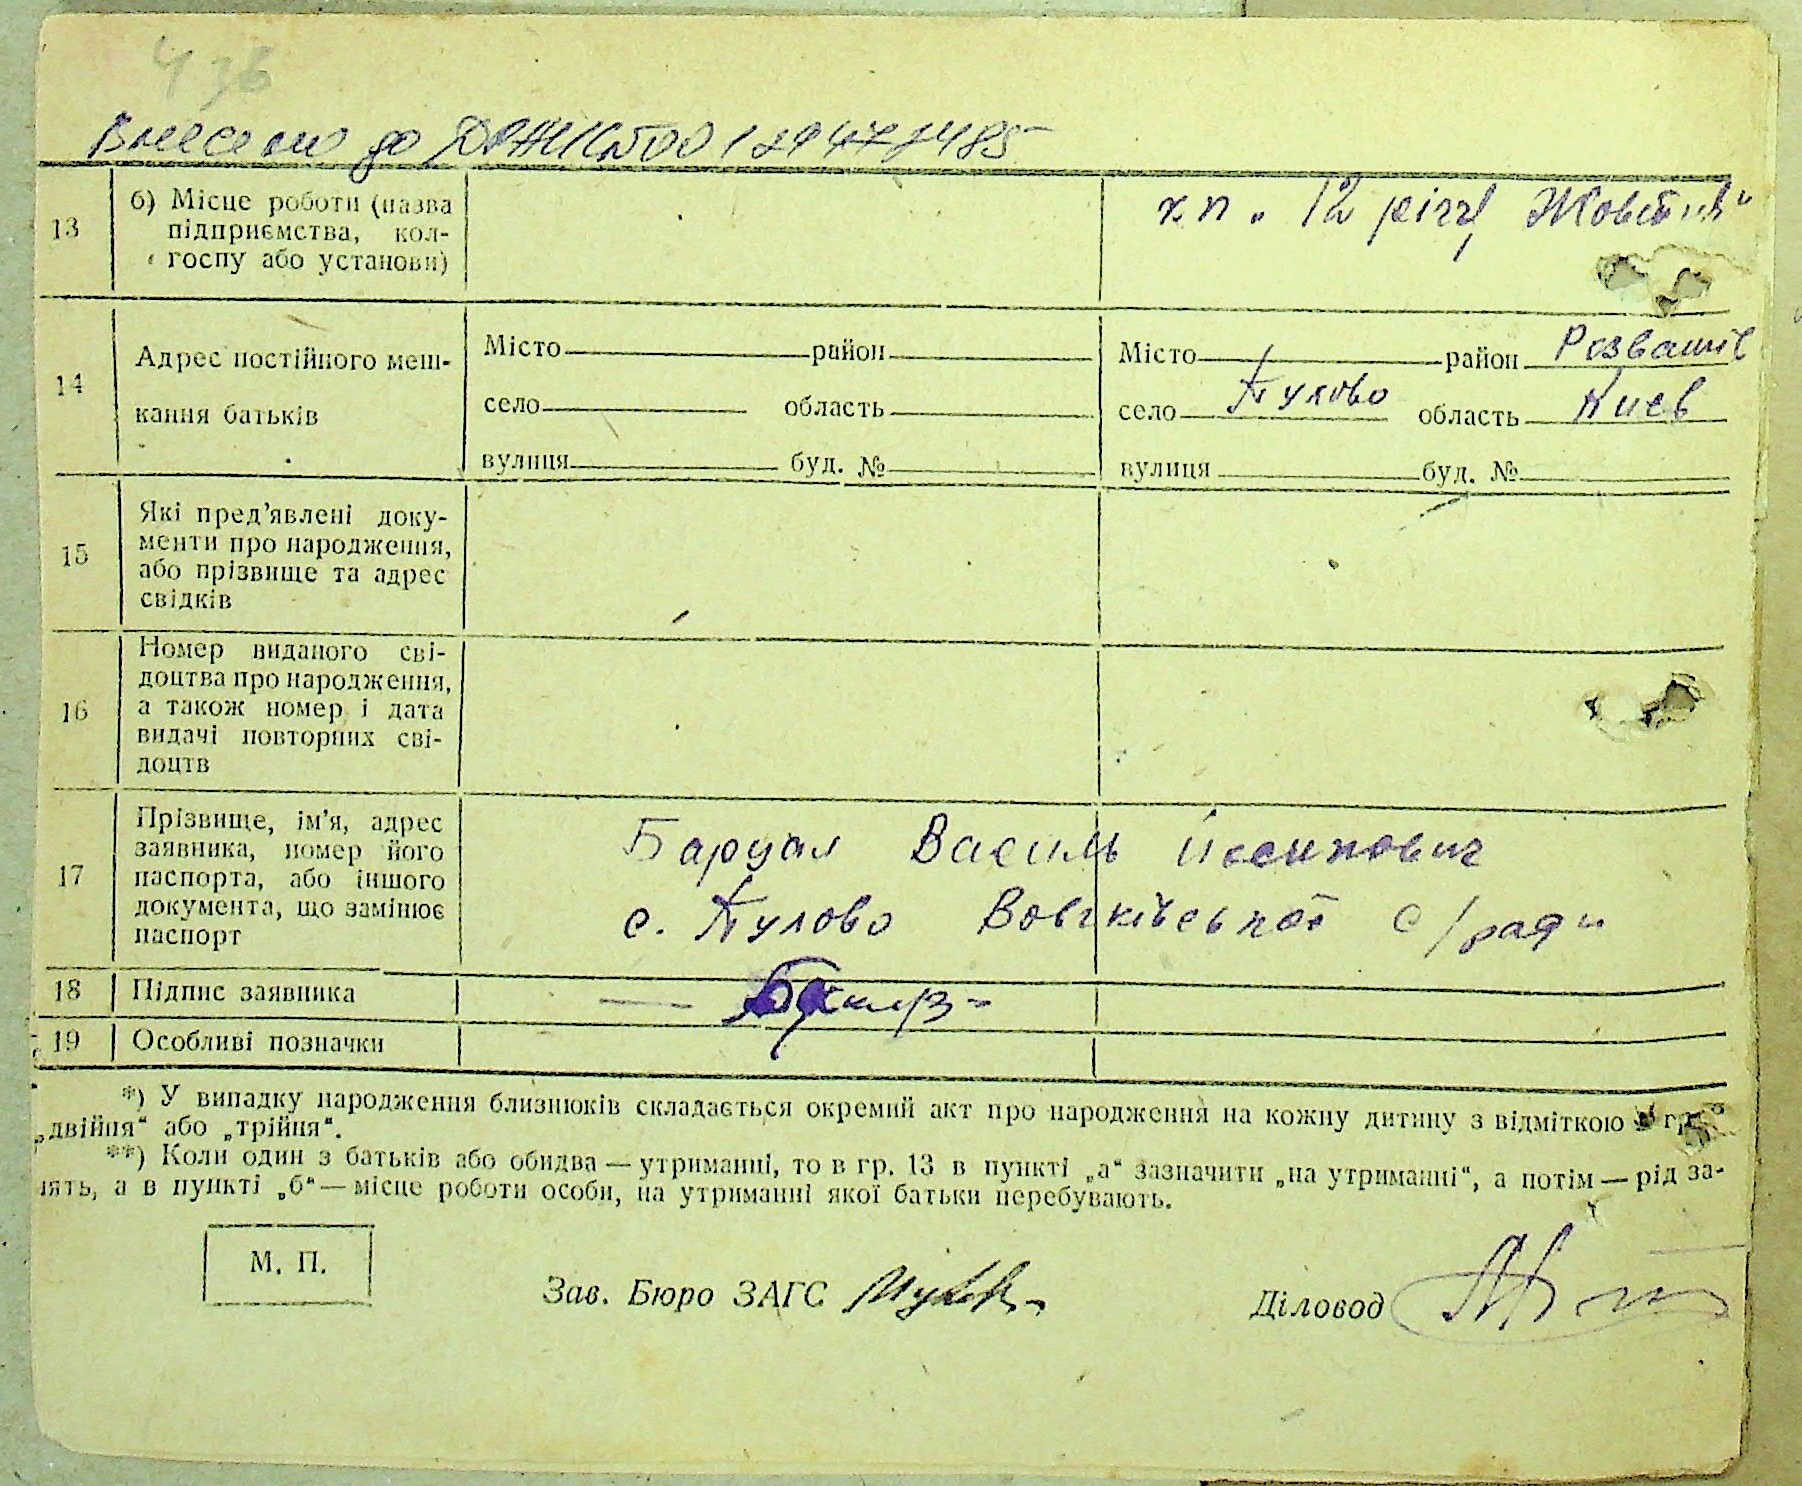 436
Внесено до ДРАЦС №00129477485
13
б) Місце роботи (назва
підприємства, кол-
госпу або установи)
кп. „12 річчя Жовтня“
14
Адрес постійного меш-
кання батьків
Місто район
село область
вулиця буд. №
Місто район Розважів
село Тулово область Киев
вулиця буд. №
15
Які пред’явлені доку-
менти про народження,
або прізвище та адрес
свідків
16
Номер виданого сві-
доцтва про народження,
а також номер і дата
видачі повторних сві-
доцтв
17
Прізвище, ім’я, адрес
заявника, номер його
паспорта, або іншого
документа, що замінює
паспорт
Василь Йосипович
с. Тулово с/ради
18
Підпис заявника
19
Особливі позначки
*) У випадку народження близнюків складається окремий акт про народження на кожну дитину з відміткою в гр.
„двійня“ або „трійня“.
**) Коли один з батьків або обидва — утриманні, то в гр. 13 в пункті „а“ зазначити „на утриманні“, а потім — рід за-
нять, а в пункті „б“ — місце роботи особи, на утриманні якої батьки перебувають.
М. П.
Зав. Бюро ЗАГС
Діловод